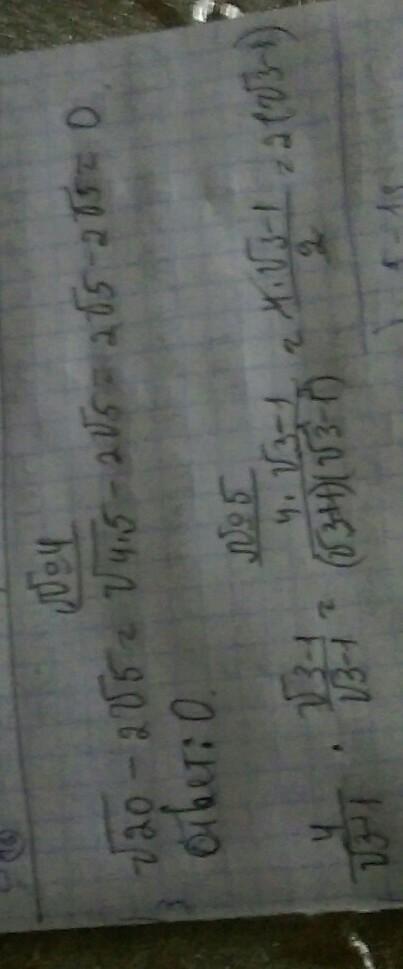 №4
√20 - 2√5 = √4·5 - 2√5 = 2√5 - 2√5 = 0.
Ответ: 0.
№5
4/√3+1 · √3-1/√3-1 = 4·√3-1/(√3+1)(√3-1) = 4·√3-1/2 = 2(√3-1)